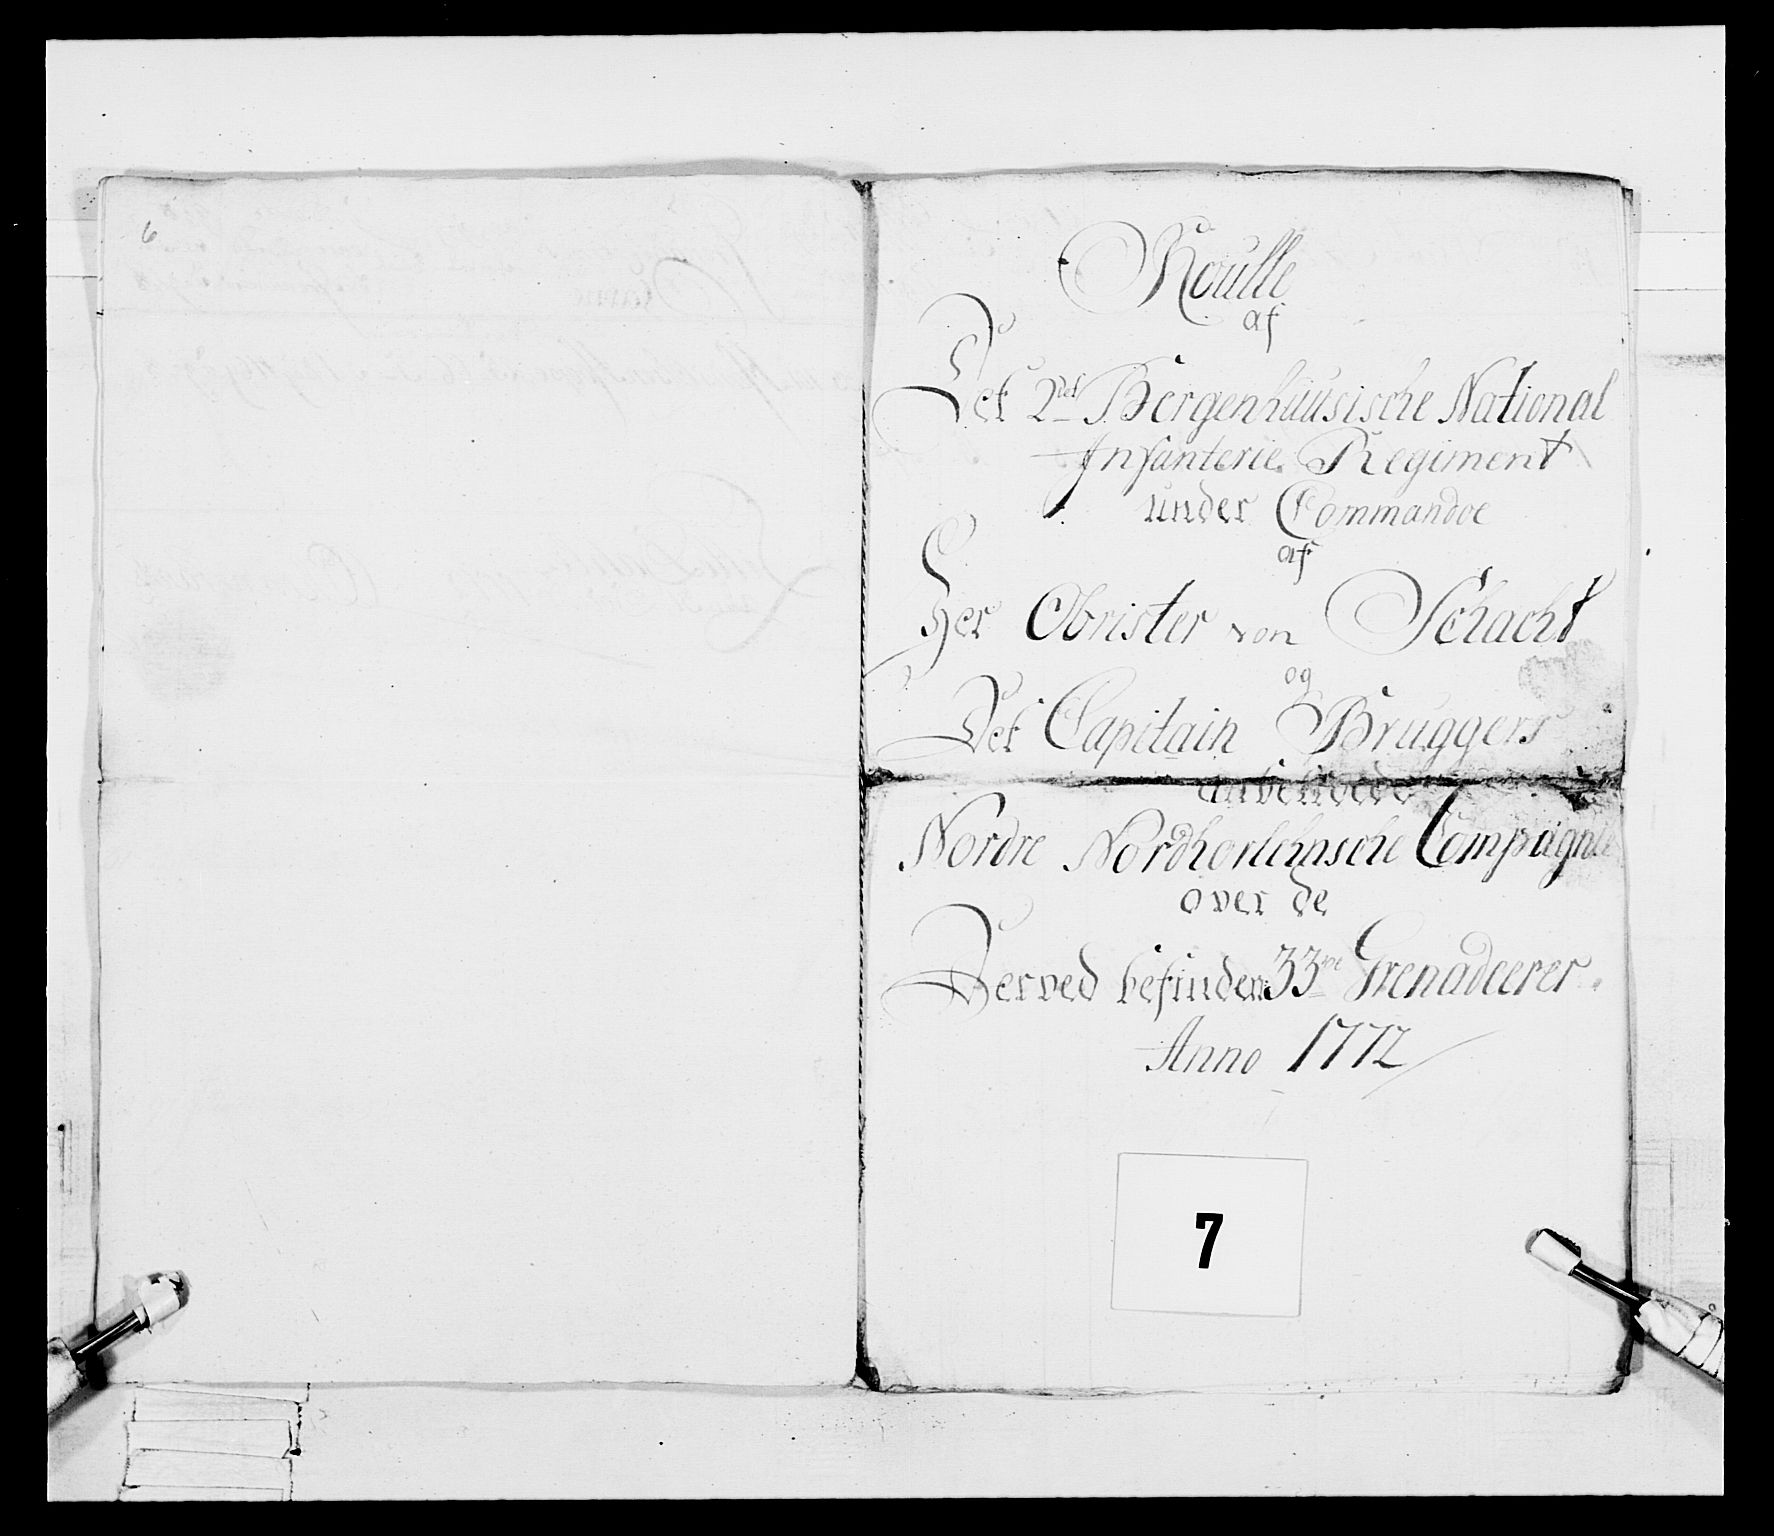 6
Roulle
af
Det 2det Bergenhuusische National
Infanterie Regiment
under Commandoe
af
Her Obrister von Schacht
og
Det Capitain Bruggers
anbetroede
Nordre Nordhorlehnsche Compagnie
over de
Derved befinden 33re Grenadeerer.
Anno 1772
7